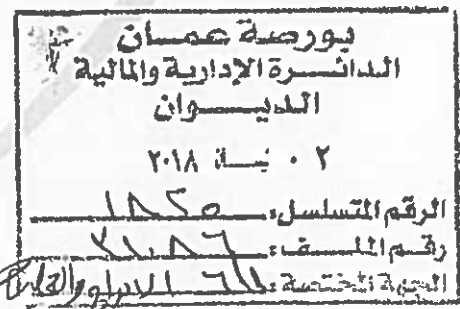 بورصة عمان
الدائرة الإدارية والمالية
الديوان
٠٢ نيسان ٢٠١٨
الرقم المتسلسل: ١٨٢٥
رقم الملف: ٣١٠٨٦
الجهة المختصة: